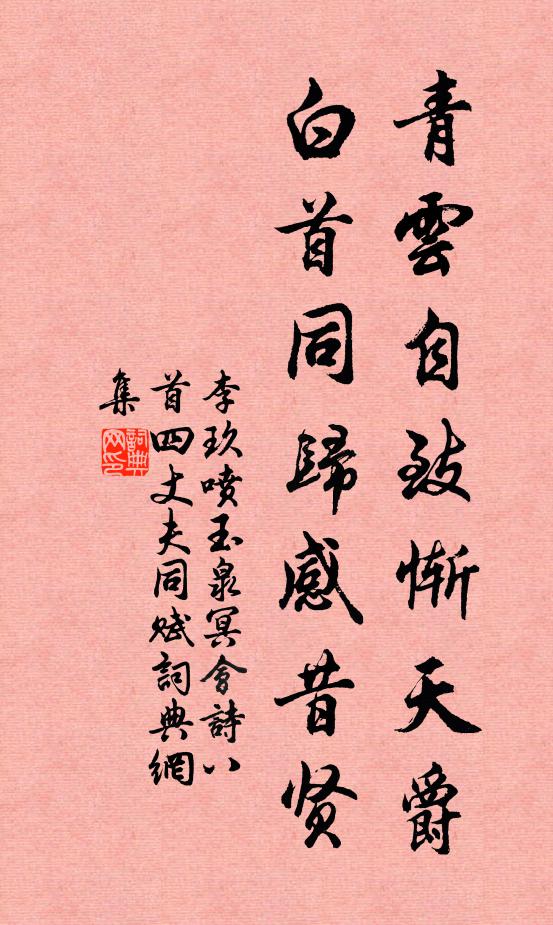 青雲自致惭天爵
白首同歸感昔贤
李玖喷玉泉冥會詩八
首四丈夫同赋詞典網
集
詞典
网印